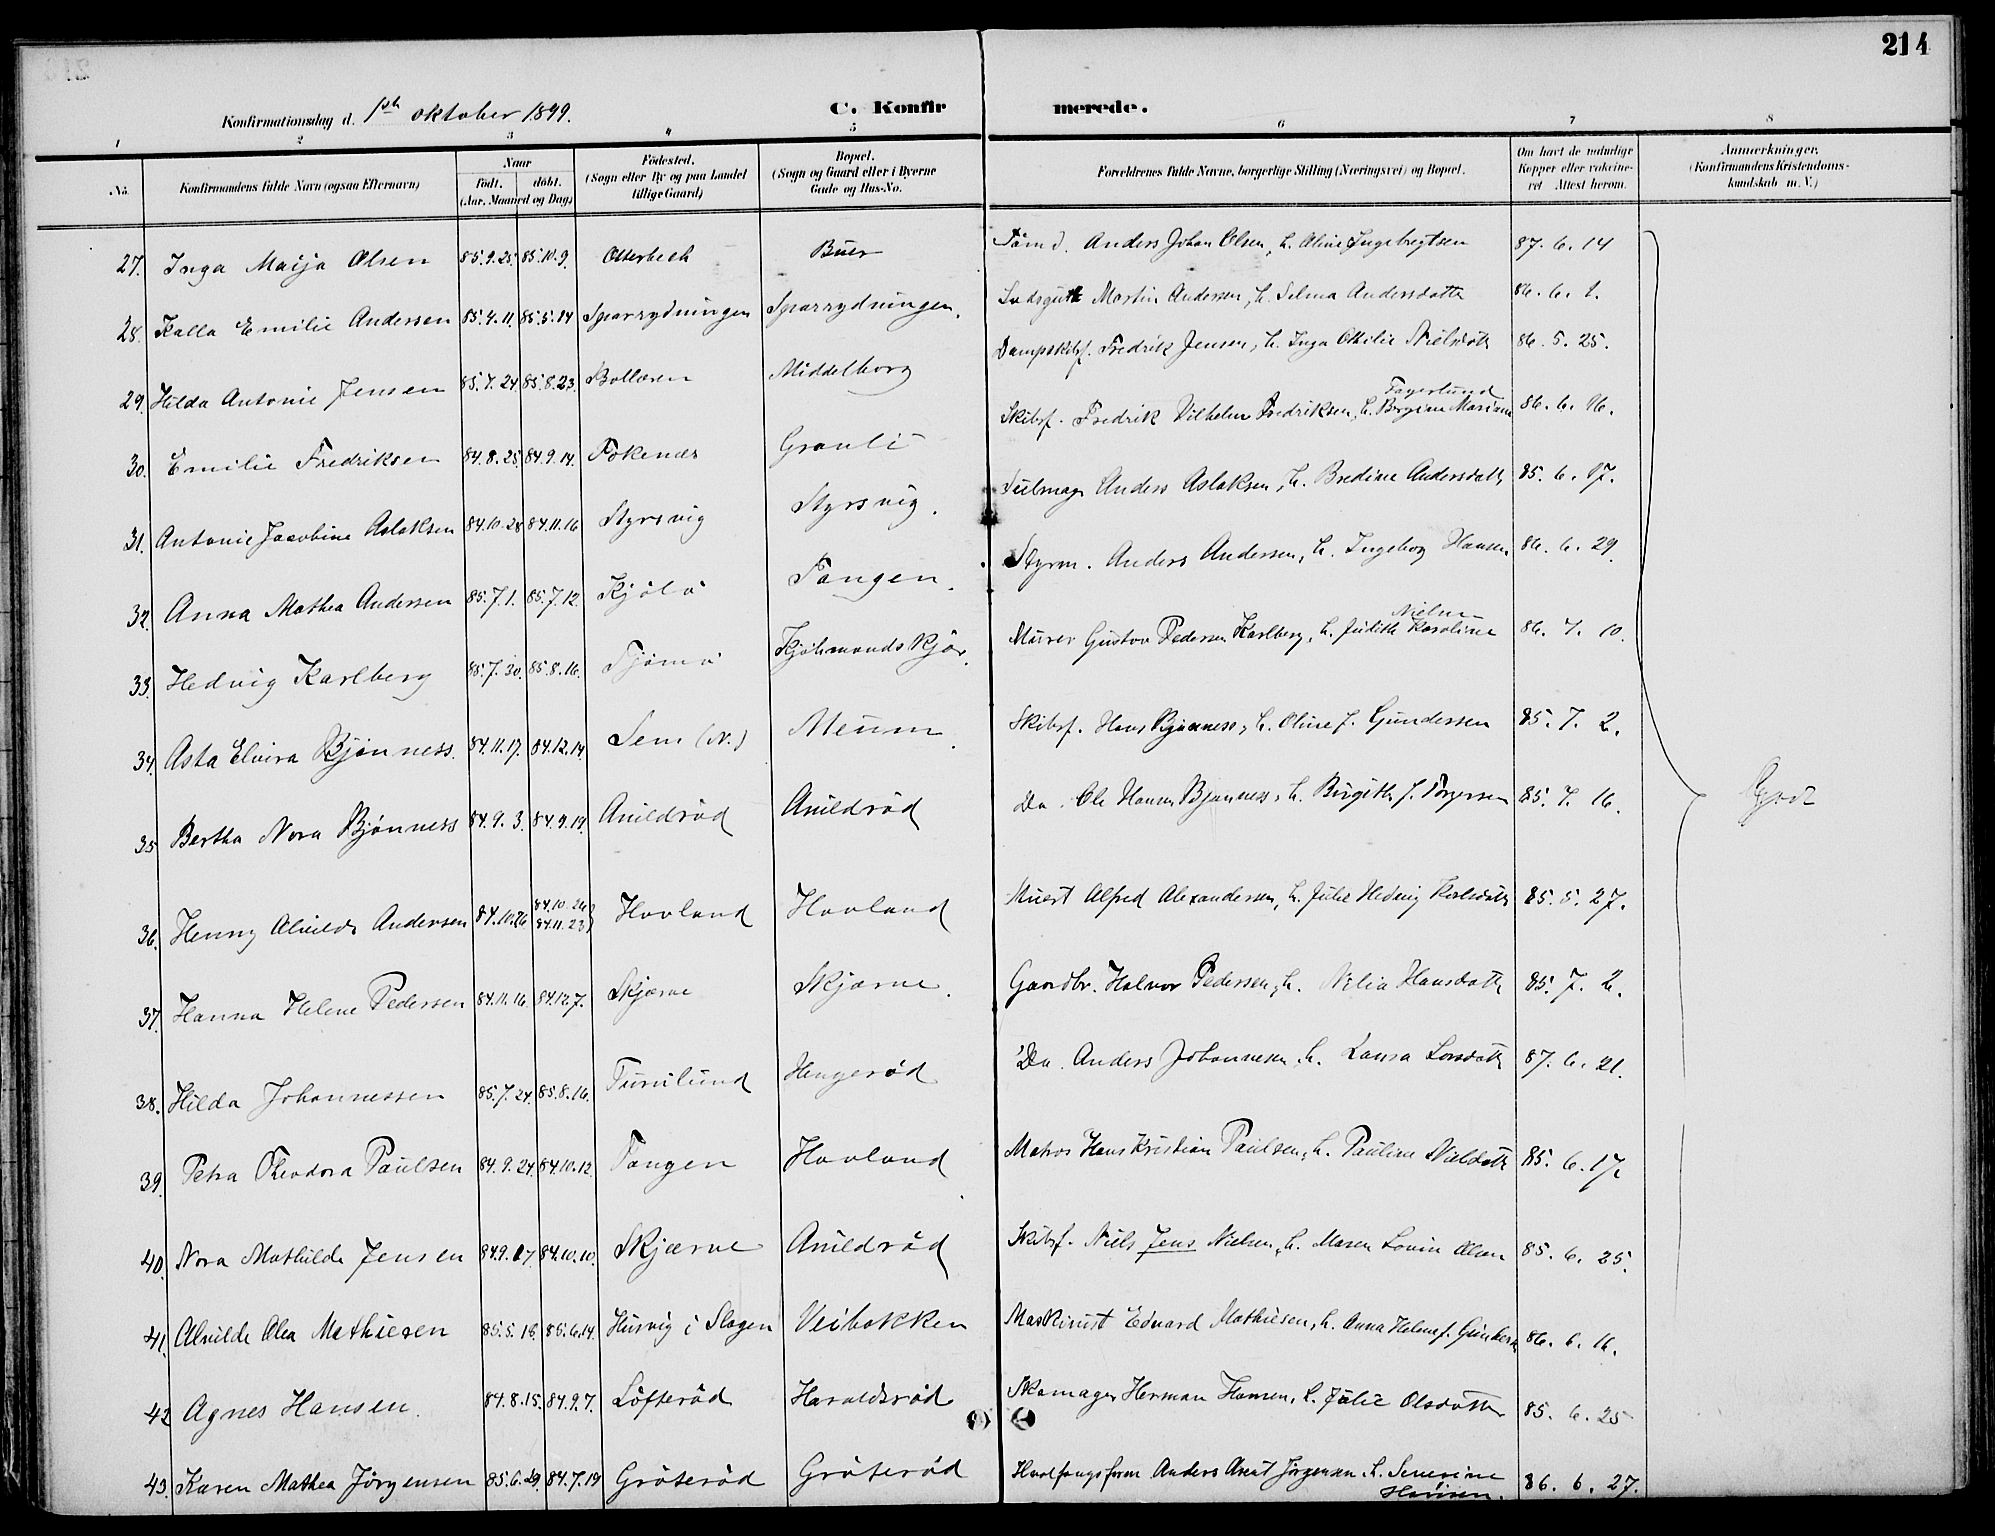 214
Konfirmationsdag d. 1ste oktober 1899. C. Konfirmerede.
1 2 3 4 5 6 7 8
No. Konfirmandens fulde Navn (ogsaa Efternavn) Naar født. døbt. (Aar, Maaned og Dag) Fødested. (Sogn eller By og paa Landet tillige Gaard) Bopæl. (Sogn og Gaard eller i Byerne Gade og Hus-No. Forældrenes fulde Navne, borgerlige Stilling (Næringsvei) og Bopæl. Om havt de naturlige Kopper eller vaccineret Attest herom. Anmærkninger. (Konfirmandens Kristendomskundskab m. V.)
27. Inga Marja Olsen 85.9.25. 85.10.9. Otterbeck Buer Tømd. Anders Johan Olsen, h. Oline Ingebregtsen 87.6.14
28. Kalla Emilie Andersen 85.4.11. 85.5.14 Sparrydningen Sparrydningen. Martin Andersen, h. Selma Andersdatter 86.6.1.
29. Hilda Antonie Jensen 85.7.24 85.8.23. Bollæren Middelborg Dampskibsf. Fredrik Jensen, h. Inga Otilie Nielsdatt 86.5.25.
30. Emilie Fredriksen 84.8.25 84.9.14. Tokenæs Granli Skibsf. Fredrik Vilhelm Fredriksen, h. Bergine Mariane Fagerlund 86.6.16.
31. Antonie Jacobine Aslaksen 84.10.28 84.11.16 Styrsvig Styrsvig. Anders Aslaksen, h. Bredine Andersdatt 85.6.17.
32. Anna Mathea Andersen 85.7.1. 85.7.12. Kjølø Tangen. Styrm. Anders Andersen, h. Ingeborg Hansen 86.6.29.
33. Hedvig Karlberg 85.7.30. 85.8.16. Tjømø Kjølmandskjær. Murer Gustav Pedersen Karlberg, h. Judith Karoline Nielsen 86.7.10.
34. Asta Elvira Bjønness. 84.11.17. 84.12.14. Sem (N.) Meum. Skibsf. Hans Bjønness, h. Oline f. Gundersen 85.7.2.
35 Bertha Nora Bjønness 84.9.3. 84.9.19. Auildrød Auildrød Do. Ole Hansen Bjønness, h. Birgitte f. Torgersen 85.7.16.
36. Henny Alvilde Andersen 84.10.26 84.10.26 84.11.23) Hovland Hovland Alfred Alexandersen, h. Julie Hedvig Karlsdatt 85.5.27.
37. Hanna Helene Pedersen 84.11.16. 84.12.7. Skjærve Skjærve. Gaardbr. Halvor Pedersen, h. Nilia Hansdatt 85.7.2.
38. Hilda Johannessen 85.7.24. 85.8.16. Furulund Hengerød Do. Anders Johannesen, h. Laura Larsdatt 87.6.21.
39. Petra Theodora Paulsen 84.9.24 84.10.12. Tangen Hovland Matros Hans Kristian Paulsen, h. Pauline Nielsdatt 85.6.17.
40. Nora Mathilde Jensen 84.9.17. 84.10.10. Skjærve Auildrød Skibsf. Niels Jens Nielsen, h. Maren Lovise Olsen 85.6.25.
41. Alvilde Olea Mathiesen 85.5.16. 85.6.14. Husvig i Slagen Veibakken Maskinist Edvard Mathiesen, h. Anna Helene f. 86.6.16.
42 Agnes Hansen. 84.8.15. 84.9.7. Løfterød Haraldsrød Skomager Herman Hansen, h. Julie Olsdatter 85.6.25
43. Karen Mathea Jørgensen 85.6.29. 84.7.19 Grøterød Grøterød Hvalfangsform Anders Arent Jørgensen, h. Severine Hansen. 86.6.27.
Godt